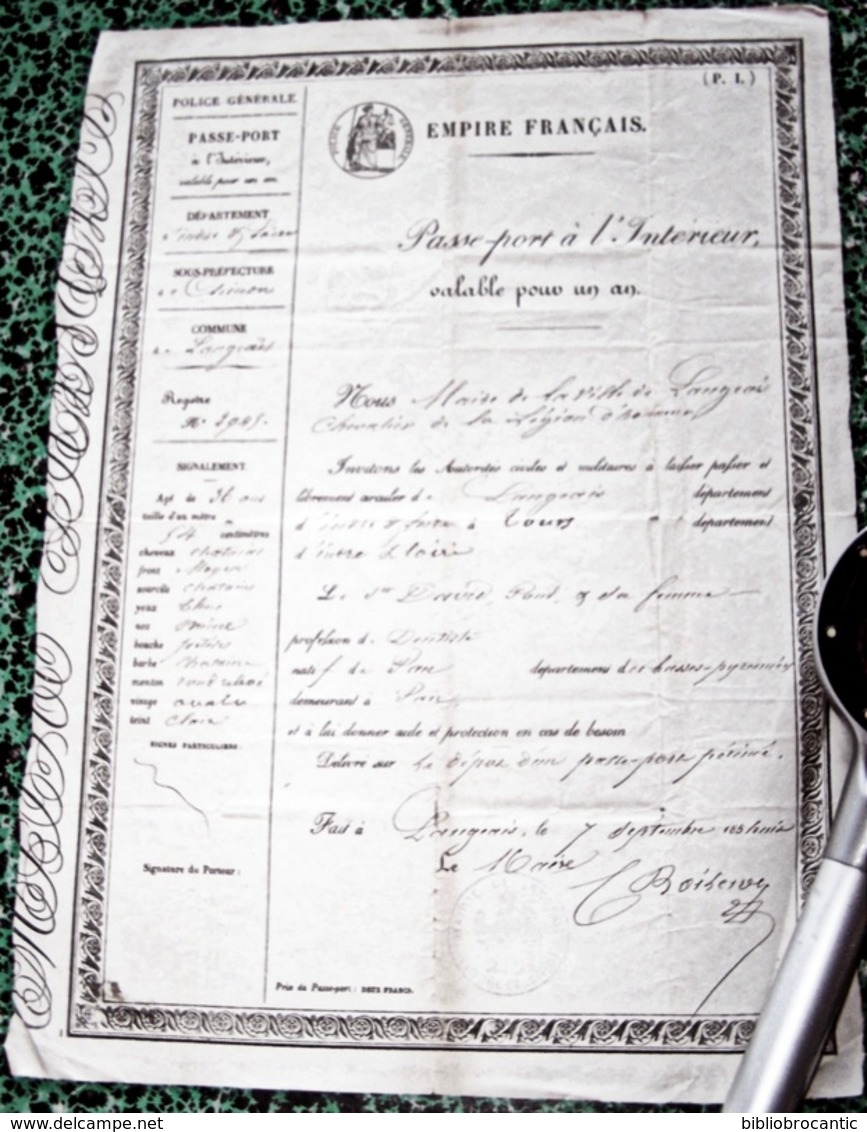 (P. I.)
POLICE GÉNÉRALE
PASSE-PORT
à l'Intérieur,
valable pour un an
DÉPARTEMENT
d'Indre & Loire
SOUS-PRÉFECTURE
de Chinon
COMMUNE
de Langeais
Registre
N°
SIGNALEMENT.
Agé de 36 ans
taille d'un mètre
54 centimètres
cheveux chatains
front Moyen
sourcils chatains
yeux bleus
nez
bouche petite
barbe chataine
menton
visage ovale
teint Clair
SIGNES PARTICULIERS:
Signature du Porteur:
EMPIRE FRANÇAIS.
Passe-port à l'Intérieur,
valable pour un an.
Nous Maire de la ville de Langeais
Chevalier de la Légion d'honneur
Invitons les Autorités civiles et militaires à laisser passer et
librement circuler de Langeais département
d'Indre & Loire à Tours département
d'Indre & Loire
Le Sr David, & sa femme
profession de Dentiste
natif de Pau département des basses-pyrennées
demeurant à Pau
et à lui donner aide et protection en cas de besoin
Délivré sur le dépos d'un passe-port périmé.
Fait à Langeais, le 7 Septembre
Le Maire
Prix du Passe-port: DEUX FRANCS.
bibliobrocantic